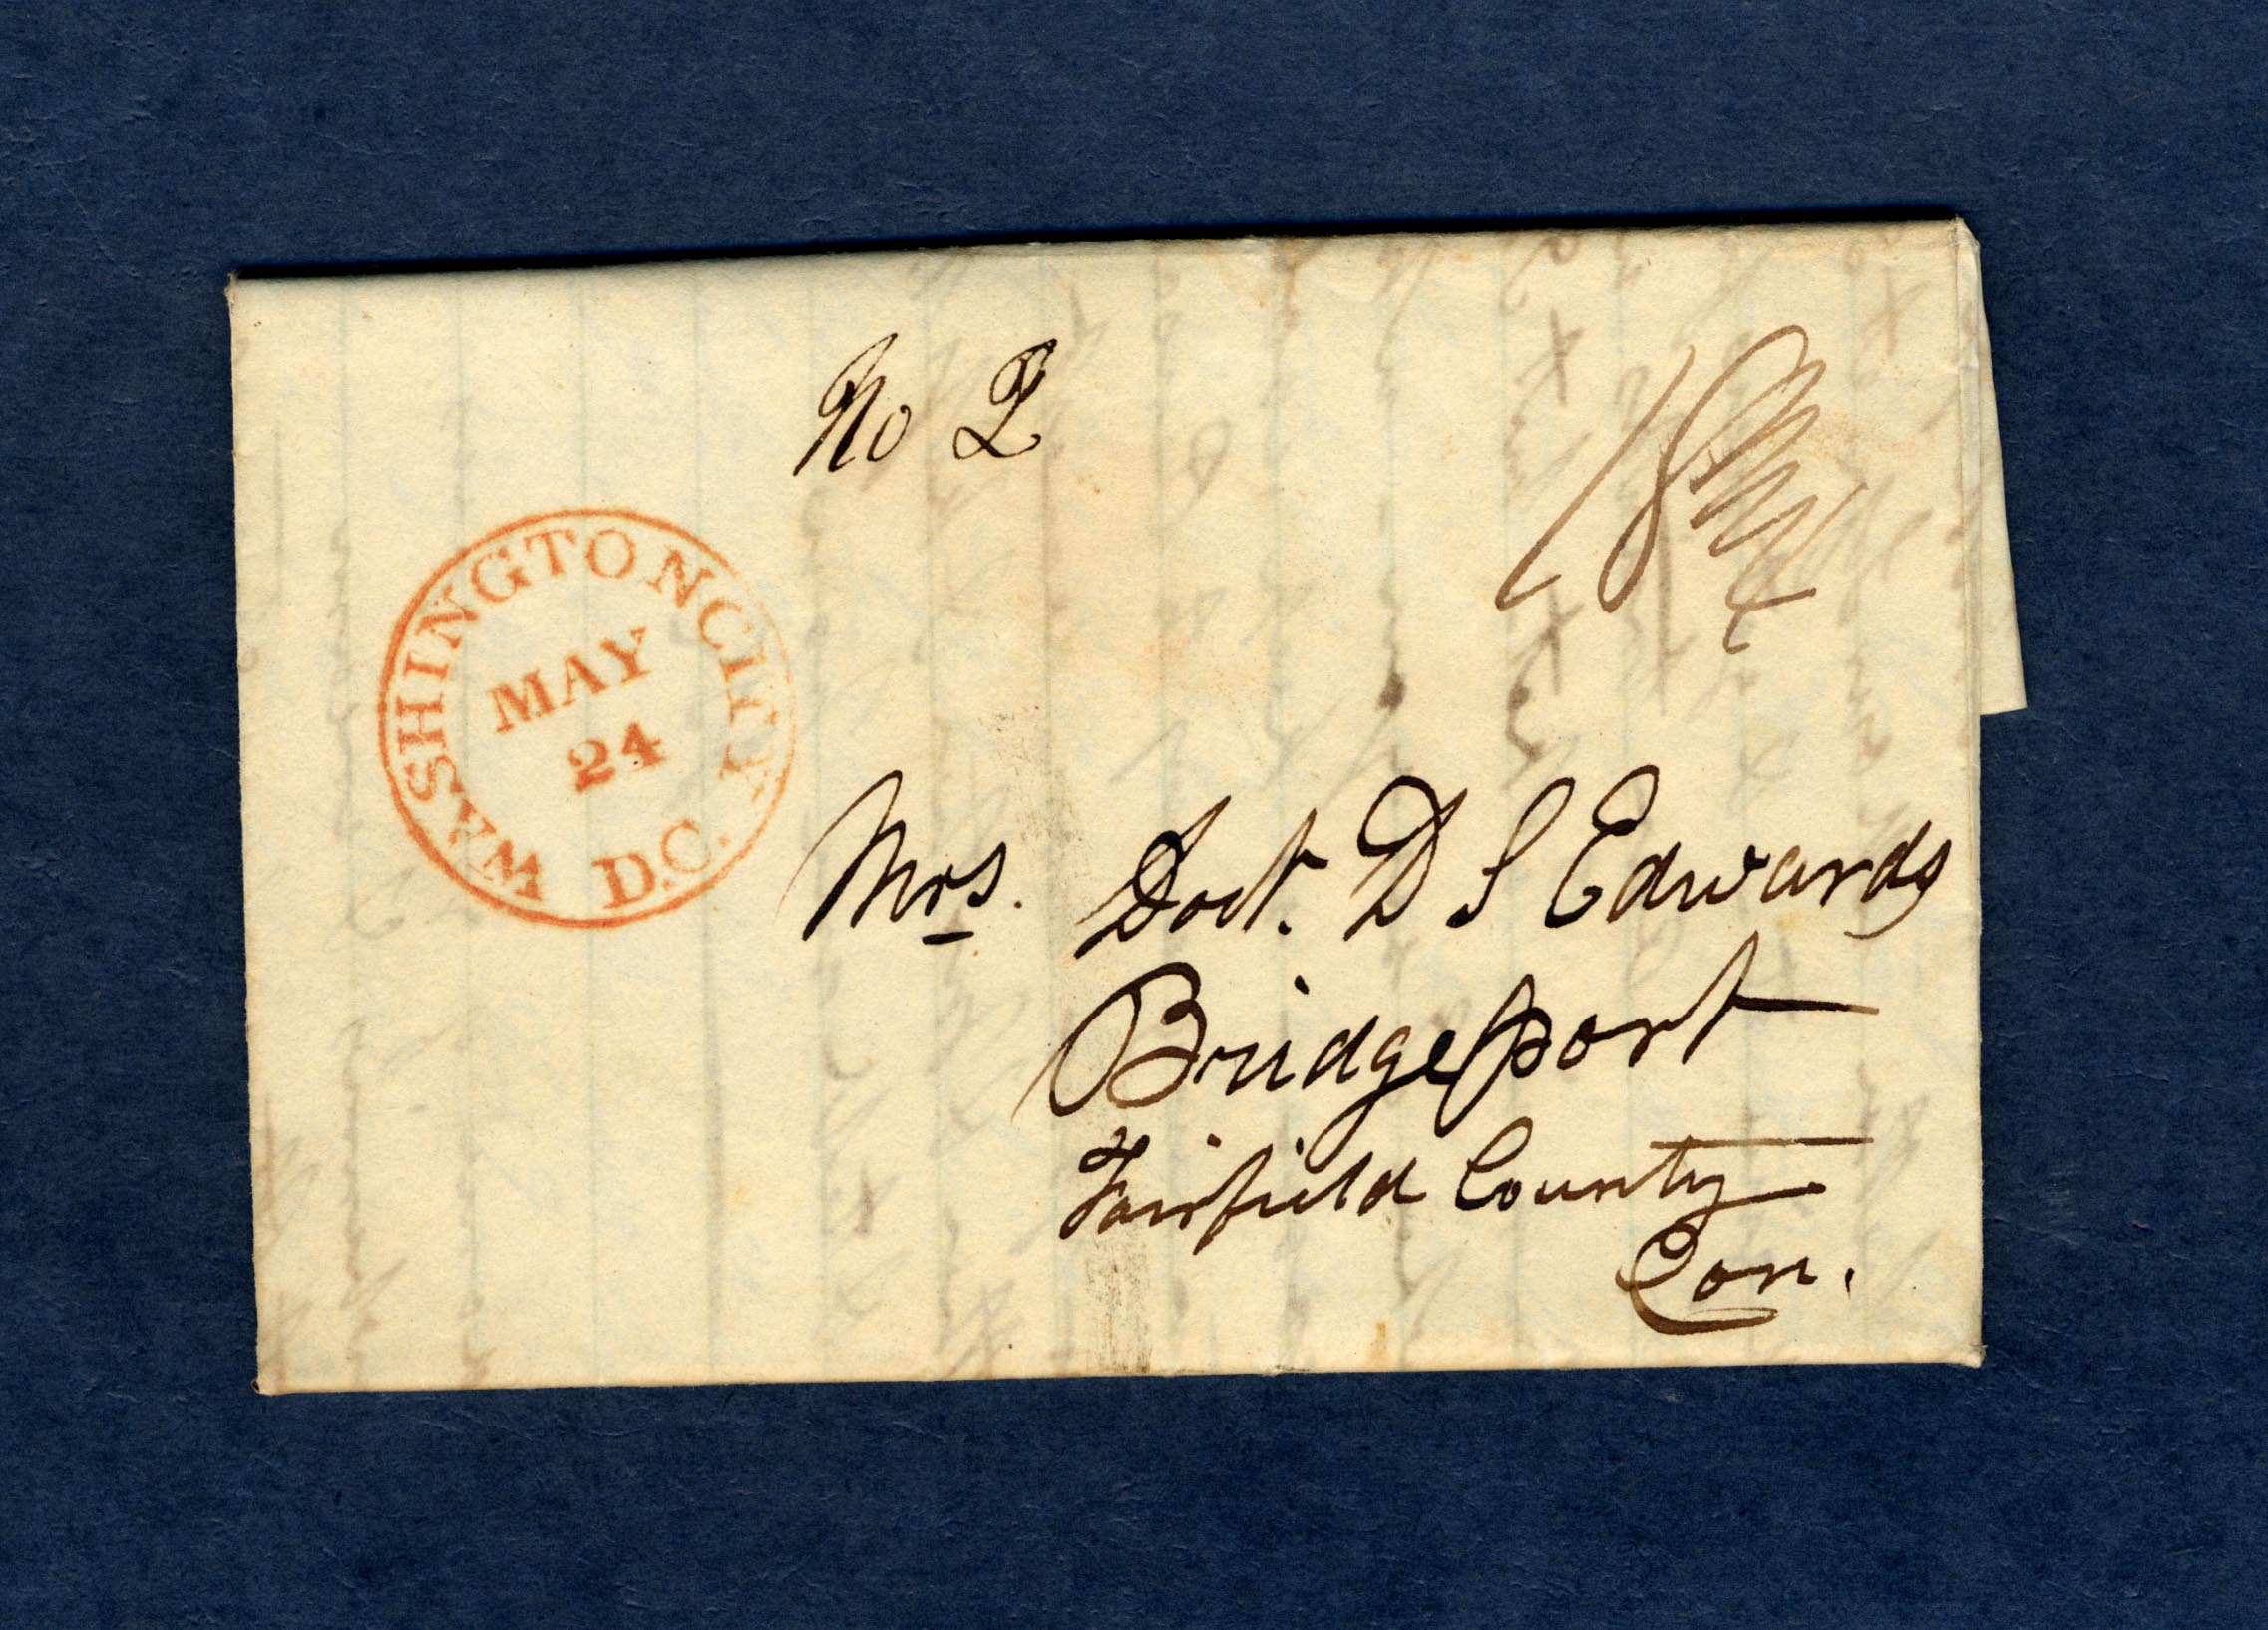 No 2
WASHINGTON CITY D.C.
MAY
24
Mrs. Doct. D S Edwards
Bridgeport
Fairfield County
Con.